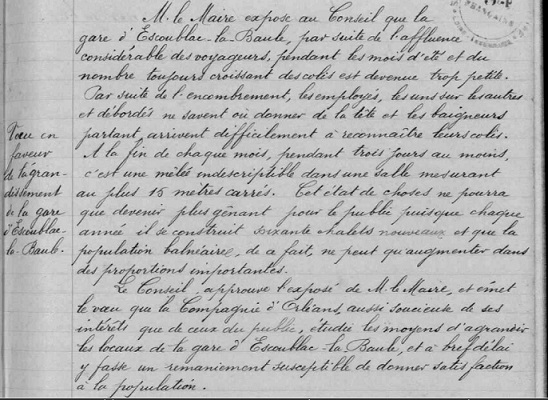 M. le Maire expose au Conseil que la
gare d'Escoublac-la-Baule, par suite de l'affluence
considérable des voyageurs, pendant les mois d'été et du
nombre toujours croissant des colis est devenue trop petite.
Par suite de l'encombrement, les employés, les uns sur les autres
et débordés ne savent où donner de la tête et les baigneurs
partant, arrivent difficilement à reconnaître leurs colis.
A la fin de chaque mois, pendant trois jours au moins,
c'est une mêlée indescriptible dans une salle mesurant
au plus 15 mètres carrés. Cet état de choses ne pourra
que devenir plus gênant pour le public puisque chaque
année il se construit soixante chalets nouveaux et que la
population balnéaire, de ce fait, ne peut qu'augmenter dans
des proportions importantes.
Le Conseil, approuve l'exposé de M. le Maire, et émet
le vœu que la Compagnie d'Orléans, aussi soucieuse de ses
intérêts que de ceux du public, étudie les moyens d'agrandir
les locaux de la gare d'Escoublac-la-Baule, et à bref délai
y fasse un remaniement susceptible de donner satisfaction
à la population.
Vœu en
faveur
de l'agran-
dissement
de la gare
d'Escoublac-
la-Baule.